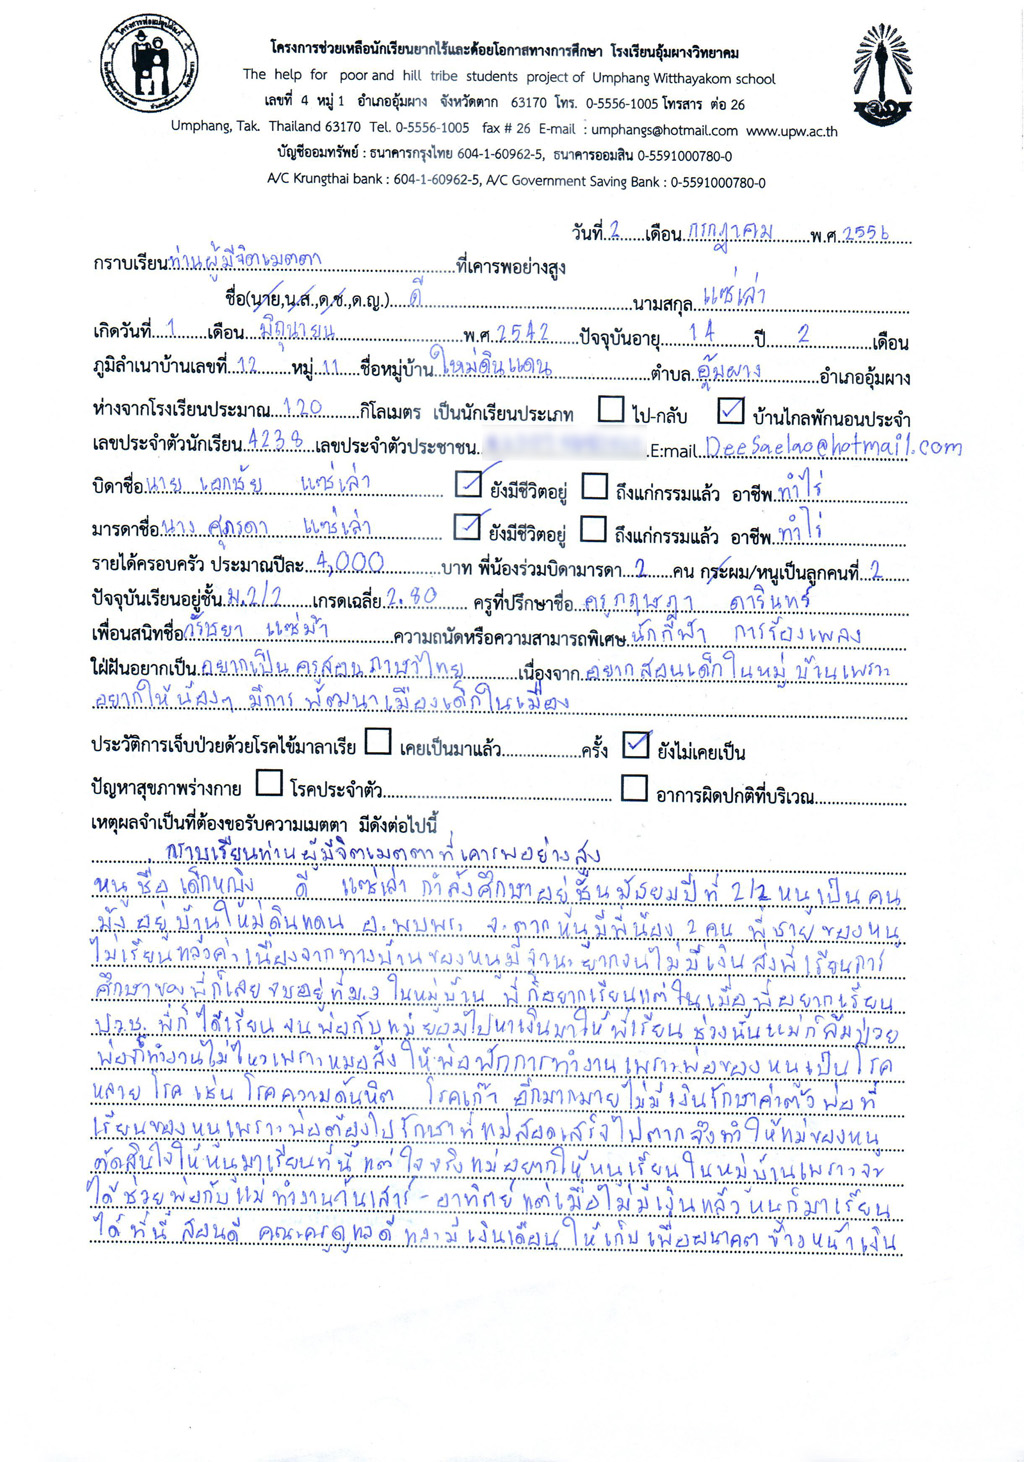 โครงการช่วยเหลือนักเรียนยากไร้และด้อยโอกาสทางการศึกษา โรงเรียนอุ้มผางวิทยาคม
The help for poor and hill tribe students project of Umphang Witthayakom school
เลขที่ 4 หมู่ 1 อำเภออุ้มผาง จังหวัดตาก 63170 โทร. 0-5556-1005 โทรสาร ต่อ 26
Umphang, Tak. Thailand 63170 Tel. 0-5556-1005 fax # 26 E-mail : umphangs@hotmail.com www.upw.ac.th
บัญชีออมทรัพย์ : ธนาคารกรุงไทย 604-1-60962-5, ธนาคารออมสิน 0-5591000780-0
A/C Krungthai bank : 604-1-60962-5, A/C Government Saving Bank : 0-5591000780-0
วันที่ 2 เดือน กรกฎาคม พ.ศ. 2556
กราบเรียน ท่านผู้มีจิตเมตตา ที่เคารพอย่างสูง
ชื่อ(นาย,น.ส.,ด.ช.,ด.ญ.) ดี นามสกุล แซ่เล่า
เกิดวันที่ 1 เดือน มิถุนายน พ.ศ. 2542 ปัจจุบันอายุ 14 ปี 2 เดือน
ภูมิลำเนาบ้านเลขที่ 12 หมู่ 11 ชื่อหมู่บ้าน ใหม่ดินแดน ตำบล อุ้มผาง อำเภออุ้มผาง
ห่างจากโรงเรียนประมาณ 120 กิโลเมตร เป็นนักเรียนประเภท ไป-กลับ บ้านไกลพักนอนประจำ
เลขประจำตัวนักเรียน 4238 เลขประจำตัวประชาชน E:mail Deesaelao@hotmail.com
บิดาชื่อ นาย เอกชัย แซ่เล่า ยังมีชีวิตอยู่ ถึงแก่กรรมแล้ว อาชีพ ทำไร่
มารดาชื่อ นาง ศุภรดา แซ่เล่า ยังมีชีวิตอยู่ ถึงแก่กรรมแล้ว อาชีพ ทำไร่
รายได้ครอบครัว ประมาณปีละ 4,000 บาท พี่น้องร่วมบิดามารดา 2 คน กระผม/หนูเป็นลูกคนที่ 2
ปัจจุบันเรียนอยู่ชั้น ม.2/2 เกรดเฉลี่ย 2.80 ครูที่ปรึกษาชื่อ ครูกฤษฎา ดารินทร์
เพื่อนสนิทชื่อ วิรัชยา แซ่ม้า ความถนัดหรือความสามารถพิเศษ นักกีฬา การร้องเพลง
ใฝ่ฝันอยากเป็น อยากเป็นครูสอนภาษาไทย เนื่องจาก อยากสอนเด็กในหมู่บ้านเพราะ
อยากให้น้องๆ มีการพัฒนาเมืองเด็กในเมือง
ประวัติการเจ็บป่วยด้วยโรคไข้มาลาเรีย เคยเป็นมาแล้ว ครั้ง ยังไม่เคยเป็น
ปัญหาสุขภาพร่างกาย โรคประจำตัว อาการผิดปกติที่บริเวณ
เหตุผลจำเป็นที่ต้องขอรับความเมตตา มีดังต่อไปนี้
กราบเรียนท่านผู้มีจิตเมตตาที่เคารพอย่างสูง
หนูชื่อ เด็กหญิง ดี แซ่เล่า กำลังศึกษาอยู่ชั้น มัธยมปีที่ 2/2 หนูเป็นคน
ม้ง อยู่บ้านใหม่ดินแดน อ.พบพระ จ.ตาก หนูมีพี่น้อง 2 คน พี่ชายของหนู
ไม่เรียนแล้วค่ะ เนื่องจากทางบ้านของหนูมีฐานะยากจนไม่มีเงินส่งพี่เรียนการ
ศึกษาของพี่ก็เลยจบอยู่ที่ม.3 ในหมู่บ้าน พี่ก็อยากเรียนแต่ในเมื่อพี่อยากเรียน
ปวช. พี่ก็ได้เรียน จนพ่อกับแม่ยอมไปหาเงินมาให้พี่เรียน ช่วงนั้นแม่ก็ล้มป่วย
พ่อก็ทำงานไม่ไหวเพราะหมอสั่งให้พ่อพักการทำงาน เพราะพ่อของหนูเป็นโรค
หลายโรค เช่น โรคความดันหิต โรคเก๊า อีกมากมาย ไม่มีเงินรักษาค่าตัวพ่อที่
เรียนของหนูเพราะพ่อต้องไปรักษาที่แม่สอดเสร็จไปตากจึงทำให้แม่ของหนู
ตัดสินใจให้หนูมาเรียนที่นี้ แต่ใจจริงแม่อยากให้หนูเรียนในหมู่บ้านเพราะจะ
ได้ช่วยพ่อกับแม่ทำงานวันเสาร์-อาทิตย์ แต่เมื่อไม่มีเงินแล้วหนูก็มาเรียน
ได้ที่นี้ สอนดี คณะครูดูแลดี และมีเงินเดือนให้เก็บเพื่ออนาคตข้างหน้าเงิน